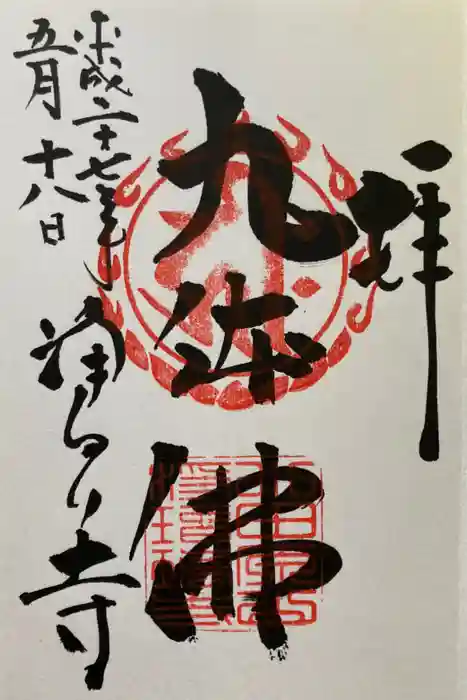 拝
九体佛
平成二十七年
五月十八日
浄るり寺